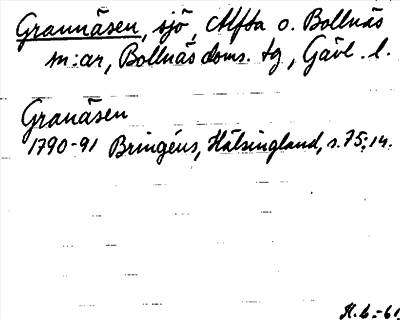 Grannäsen, sjö, Alfta o. Bollnäs
m:ar, Bollnäs doms. tg, Gävl. l.
Granäsen
1790-91 Bringéus, Hälsingland, s. 75; 14.
H.b.-61